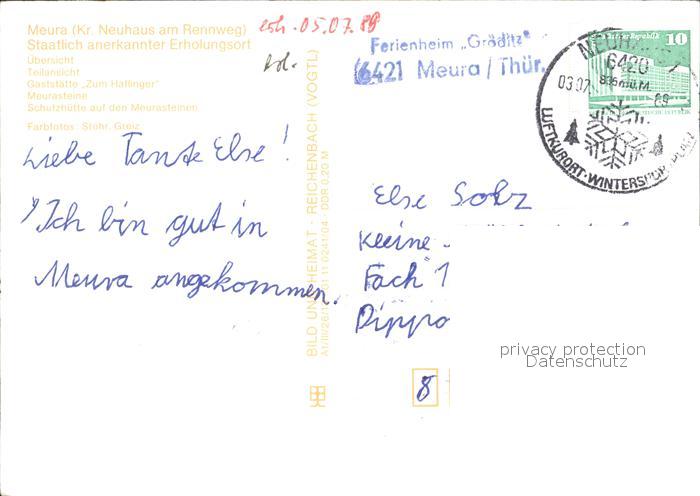 Meura (Kr. Neuhaus am Rennweg)
Staatlich anerkannter Erholungsort
Übersicht
Teilansicht
Gaststätte „Zum Halfinger"
Meurasteine
Schutzhütte auf den Meurasteinen
Farbfotos: Stöhr, Greiz
erh. 05.07.89
Ferienheim „Gröditz"
6421 Meura / Thür.
10
NEUHAUS
6420
835 m ü. M.
03.07. 89
LUFTKURORT · WINTERSPORTPLATZ
Liebe Tante Else!
Ich bin gut in
Meura angekommen.
BILD UND HEIMAT · REICHENBACH (VOGTL)
DDR 0,20 M
Else Solz
Kleine
Fach 1
Dippo
8
privacy protection
Datenschutz